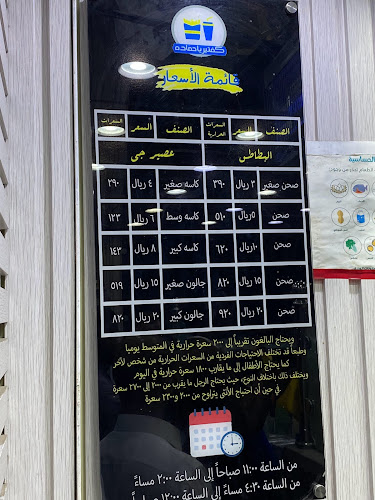 كفتيريا حماده
قائمة الأسعار
الصنف السعر السعرات الحرارية الصنف السعر السعرات الحرارية
البطاطس عصير جي
صحن صغير ٣ ريال ٣٩٠ كاسه صغير ٤ ريال ٢٩٠
صحن ٥ ريال ٥١٠ كاسه وسط ٦ ريال ١٢٣
صحن ١٠ ريال ٦٢٠ كاسه كبير ٨ ريال ١٤٣
صحن ١٥ ريال ٨٢٠ جالون صغير ١٥ ريال ٥١٩
صحن ٢٠ ريال ٩٢٠ جالون كبير ٢٠ ريال ٨٢٠
ويحتاج البالغون تقريباً إلى ٢٠٠٠ سعرة حرارية في المتوسط يوميا
وطبعاً قد تختلف الاحتياجات الفردية من السعرات الحرارية من شخص لآخر
كما يحتاج الأطفال إلى ما يقارب ١٨٠٠ سعرة حرارية في اليوم
ويختلف ذلك باختلاف النوع، حيث يحتاج الرجل ما يقرب من ٢٠٠٠ إلى ٢٧٠٠ سعرة
في حين أن احتياج الأنثى يتراوح من ٢٠٠٠ و٢٢٠٠ سعرة
من الساعة ١١:٠٠ صباحاً إلى الساعة ٢:٠٠ مساءً
من الساعة ٤:٣٠ مساءً إلى الساعة ١٢:٠٠
الحساسية